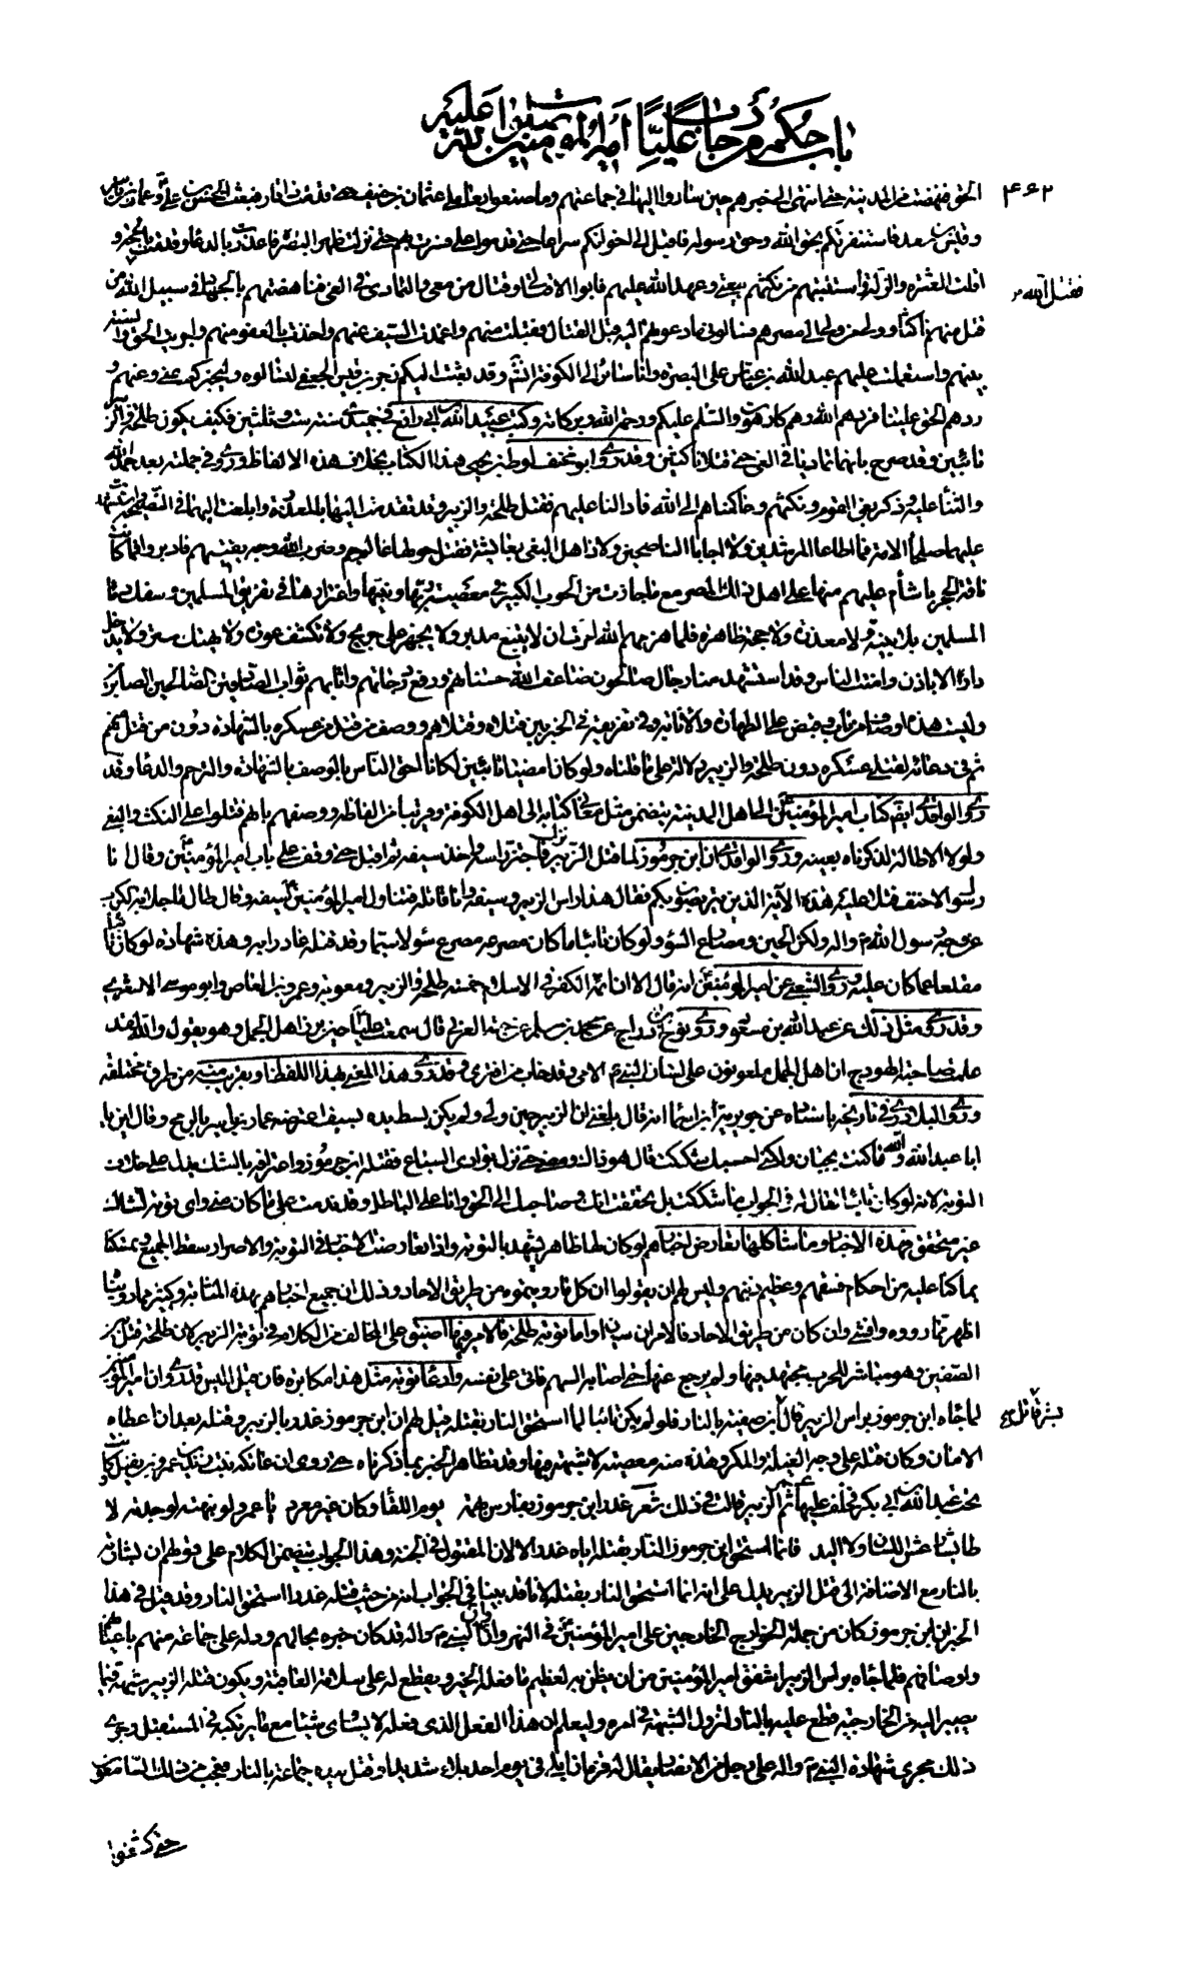 باب حكم من حارب عليا امير المؤمنين صلوات الله عليه
۴۶۲
الحق فنهضت من المدينة حين انتهى الى خبرهم حين ساروا اليها في جماعتهم وما صنعوا بعاملى عثمان بن حنيف حتى قدمت ذاقار فبعثت الحسن بن على وعمار بن ياسر
وقيس بن سعد فاستنفرتكم بحق الله وحق رسوله فاقبل الى اخوانكم سراعا حتى قدموا على فسرت بهم حتى نزلت ظهر البصرة فاعذرت بالدعاء وقدمت الحجة و
اقلت العثرة والزلة واستتبتهم من نكثهم بيعتى وعهد الله عليهم فابوا الا قتالى وقتال من معى والتمادى في الغى فناهضتهم بالجهاد في سبيل الله من
فقتل الله
قتل منهم ناكثا وولى من ولى الى مصرهم فسألونى ما دعوتهم اليه قبل القتال فقبلت منهم واغمدت السيف عنهم واخذت بالعفو منهم واجريت الحق والسنة
بينهم واستعملت عليهم عبد الله بن عباس على البصرة وانا سائر الى الكوفة انشاء الله وقد بعثت اليكم زحر بن قيس الجعفى لتسألوه وليخبركم عنى وعنهم و
ردهم الحق علينا فردهم الله وهم كارهون والسلم عليكم ورحمة الله وبركاته وكتب عبيد الله بن ابى رافع في جميدى سنة ست وثلثين فكيف يكون طلحة والزبير
تائبين وقد صرح بانهما تماديا في الغى حتى قتلا ناكثين وقد روى ابو مخنف لوط بن يحيى هذا الكتاب بخلاف هذه الالفاظ وروى في جملته بعد حمد الله
والثناء عليه وذكر بغى القوم ونكثهم وحاكمناهم الى الله فادالنا عليهم فقتل طلحة والزبير وقد تقدمت اليهما بالمعذرة وابلغت اليهما في النصيحة واستشهدت
عليهما صلحاء الامة فما اطاعا المرشدين ولا اجابا الناصحين ولاذ اهل البغى بعائشة فقتل حولها عالم جم وضرب الله وجه بقيتهم فادبروا فما كانت
ناقة الحجر باشأم عليهم منها على اهل ذلك المصر مع ما جاءت من الحوب الكبير في معصية ربها ونبيها واغترارها في تفريق المسلمين وسفك دماء
المسلمين بلا بينة ولا معذرة ولا حجة ظاهرة فلما هزمهم الله امرت ان لا يتبع مدبر ولا يجهز على جريح ولا تكشف عورة ولا يهتك ستر ولا يدخل
دار الا باذن وامنت الناس وقد استشهد منا رجال صالحون ضاعف الله حسناتهم ورفع درجاتهم واثابهم ثواب الصادقين الصالحين الصابرين
وليست هذه اوصاف من تاب وقبض على الطهارة والانابة وفى تفريقه في الخبر بين قتلاه وقتلاهم ووصف من قتل من عسكره بالشهادة دون من قتل منهم
ثم في دعائه لقتلى عسكره دون طلحة والزبير دلالة على ما قلناه ولو كانا مضيا تائبين لكانا احق الناس بالوصف بالشهادة والترحم والدعاء وقد
روى الواقدى ايضا كتاب امير المؤمنين الى اهل المدينة يتضمن مثل معنى كتابه الى اهل الكوفة وقريبا من الفاظه ووصفهم بانهم قتلوا على النكث والبغى
ولولا الاطالة لذكرناه بعينه وروى الواقدى ان ابن جرموز لما قتل الزبير نزل فاحتز رأسه واخذ سيفه ثم اقبل حتى وقف على باب امير المؤمنين وقال انا
رسول الاحنف فتلا عليه هذه الاية الذين يتربصون بكم فقال هذا راس الزبير وسيفه وانا قاتله فتناول امير المؤمنين سيفه وقال طال ما جلا به الكرب
عن وجه رسول الله ص واله ولكن الحين ومصارع السوء ولو كان تائبا ما كان مصرعه مصرع سوء لا سيما وقد قتله غادرا به وهذه شهادة لو كان تائبا
مقلعا عما كان عليه وروى الشعبى عن امير المؤمنين انه قال الا ان ائمة الكفر في الاسلام خمسة طلحة والزبير ومعوية وعمرو بن العاص وابو موسى الاشعرى
وقد روى مثل ذلك عن عبد الله بن مسعود وروى نوح بن دراج عن محمد بن مسلم عن حبة العرنى قال سمعت عليا حين برز اهل الجمل وهو يقول والله لقد
علمت صاحبة الهودج ان اهل الجمل ملعونون على لسان النبى الامى وقد خاب من افترى وقد روى هذا المعنى بهذا اللفظ او بقريب منه من طرق مختلفة
وروى البلاذرى في تاريخه باسناده عن جويرية بن اسماء انه قال بلغنى ان الزبير حين ولى ولم يكن بسط يده بسيف اعترضه عمار بن ياسر بالرمح وقال اين يا
ابا عبد الله والله ما كنت بجبان ولكنى احسبك شككت قال هو ذاك ومضى حتى نزل بوادى السباع فقتله ابن جرموز واعترافه بالشك يدل على خلاف
التوبة لانه لو كان تائبا لقال له في الجواب ما شككت بل تحققت انك وصاحبك الى الحق وانا على الباطل وقد ندمت على ما كان منى واى توبة لشاك
غير متحقق فهذه الاخبار وما شاكلها تعارض اخبارهم لو كان لها ظاهر يشهد بالتوبة واذا تعارضت الاخبار في التوبة والاصرار سقط الجميع وتمسكنا
بما كنا عليه من احكام فسقهم وعظيم ذنبهم وليس لهم ان يقولوا ان كل ما رويتموه من طريق الاحاد وذلك ان جميع اخبارهم بهذه المثابة وكثير مما رويناه
اظهر مما رووه وافشى وان كان من طريق الاحاد فالامران سيان واما توبة طلحة فالامر فيها اضيق على المخالف من الكلام في توبة الزبير لان طلحة قتل بين
الصفين وهو مباشر للحرب مجتهد فيها ولم يرجع عنها حتى اصابه السهم فاتى على نفسه وادعاء توبة مثل هذا مكابرة فان قيل اليس قد روى ان امير المؤمنين
لما جاءه ابن جرموز براس الزبير قال بشر قاتل ابن صفية بالنار فلو لم يكن تائبا لما استحق النار بقتله قيل لهم ان ابن جرموز غدر بالزبير وقتله بعد ان اعطاه
الامان وكان قتله على وجه الغيلة والمكر وهذه منه معصية لا شبهة فيها وقد تظاهر الخبر بما ذكرناه حتى روى ان عاتكة بنت زيد بن عمرو بن نفيل كانت
تحت عبد الله بن ابى بكر فخلف عليها ثم الزبير قالت في ذلك شعر غدر ابن جرموز بفارس بهمة يوم اللقاء وكان غير معرد يا عمرو لو نبهته لوجدته لا
طائشا رعش اللسان ولا اليد فانما استحق ابن جرموز النار بقتله اياه غدرا لا لان المقتول في الجنة وهذا الجواب يتضمن الكلام على قولهم ان بشارته
بالنار مع الاضافة الى قتل الزبير يدل على انه انما استحق النار بقتله لانا قد بينا في الجواب انه من حيث قتله غدرا استحق النار وقد قيل في هذا
الخبر ان ابن جرموز كان من جملة الخوارج الخارجين على امير المؤمنين في النهروان وان النبى ص واله قد كان خبره بحالهم ودله على جماعة منهم باعيانهم
واوصافهم فلما جاءه براس الزبير اشفق امير المؤمنين من ان يظن به لعظيم ما فعله الخير ويقطع له على سلامة العاقبة ويكون قتله الزبير شبهة فيما
يصير اليه من الخارجية قطع عليه بالنار لتزول الشبهة في امره وليعلم ان هذا الفعل الذى فعله لا يساوى شيئا مع ما يرتكبه في المستقبل وجرى
ذلك مجرى شهادة النبى ص واله على رجل من الانصار يقال له قزمان ابلى في يوم احد بلاء شديدا وقتل بيده جماعة بالنار فعجب من ذلك السامعون
حتى كشفوا